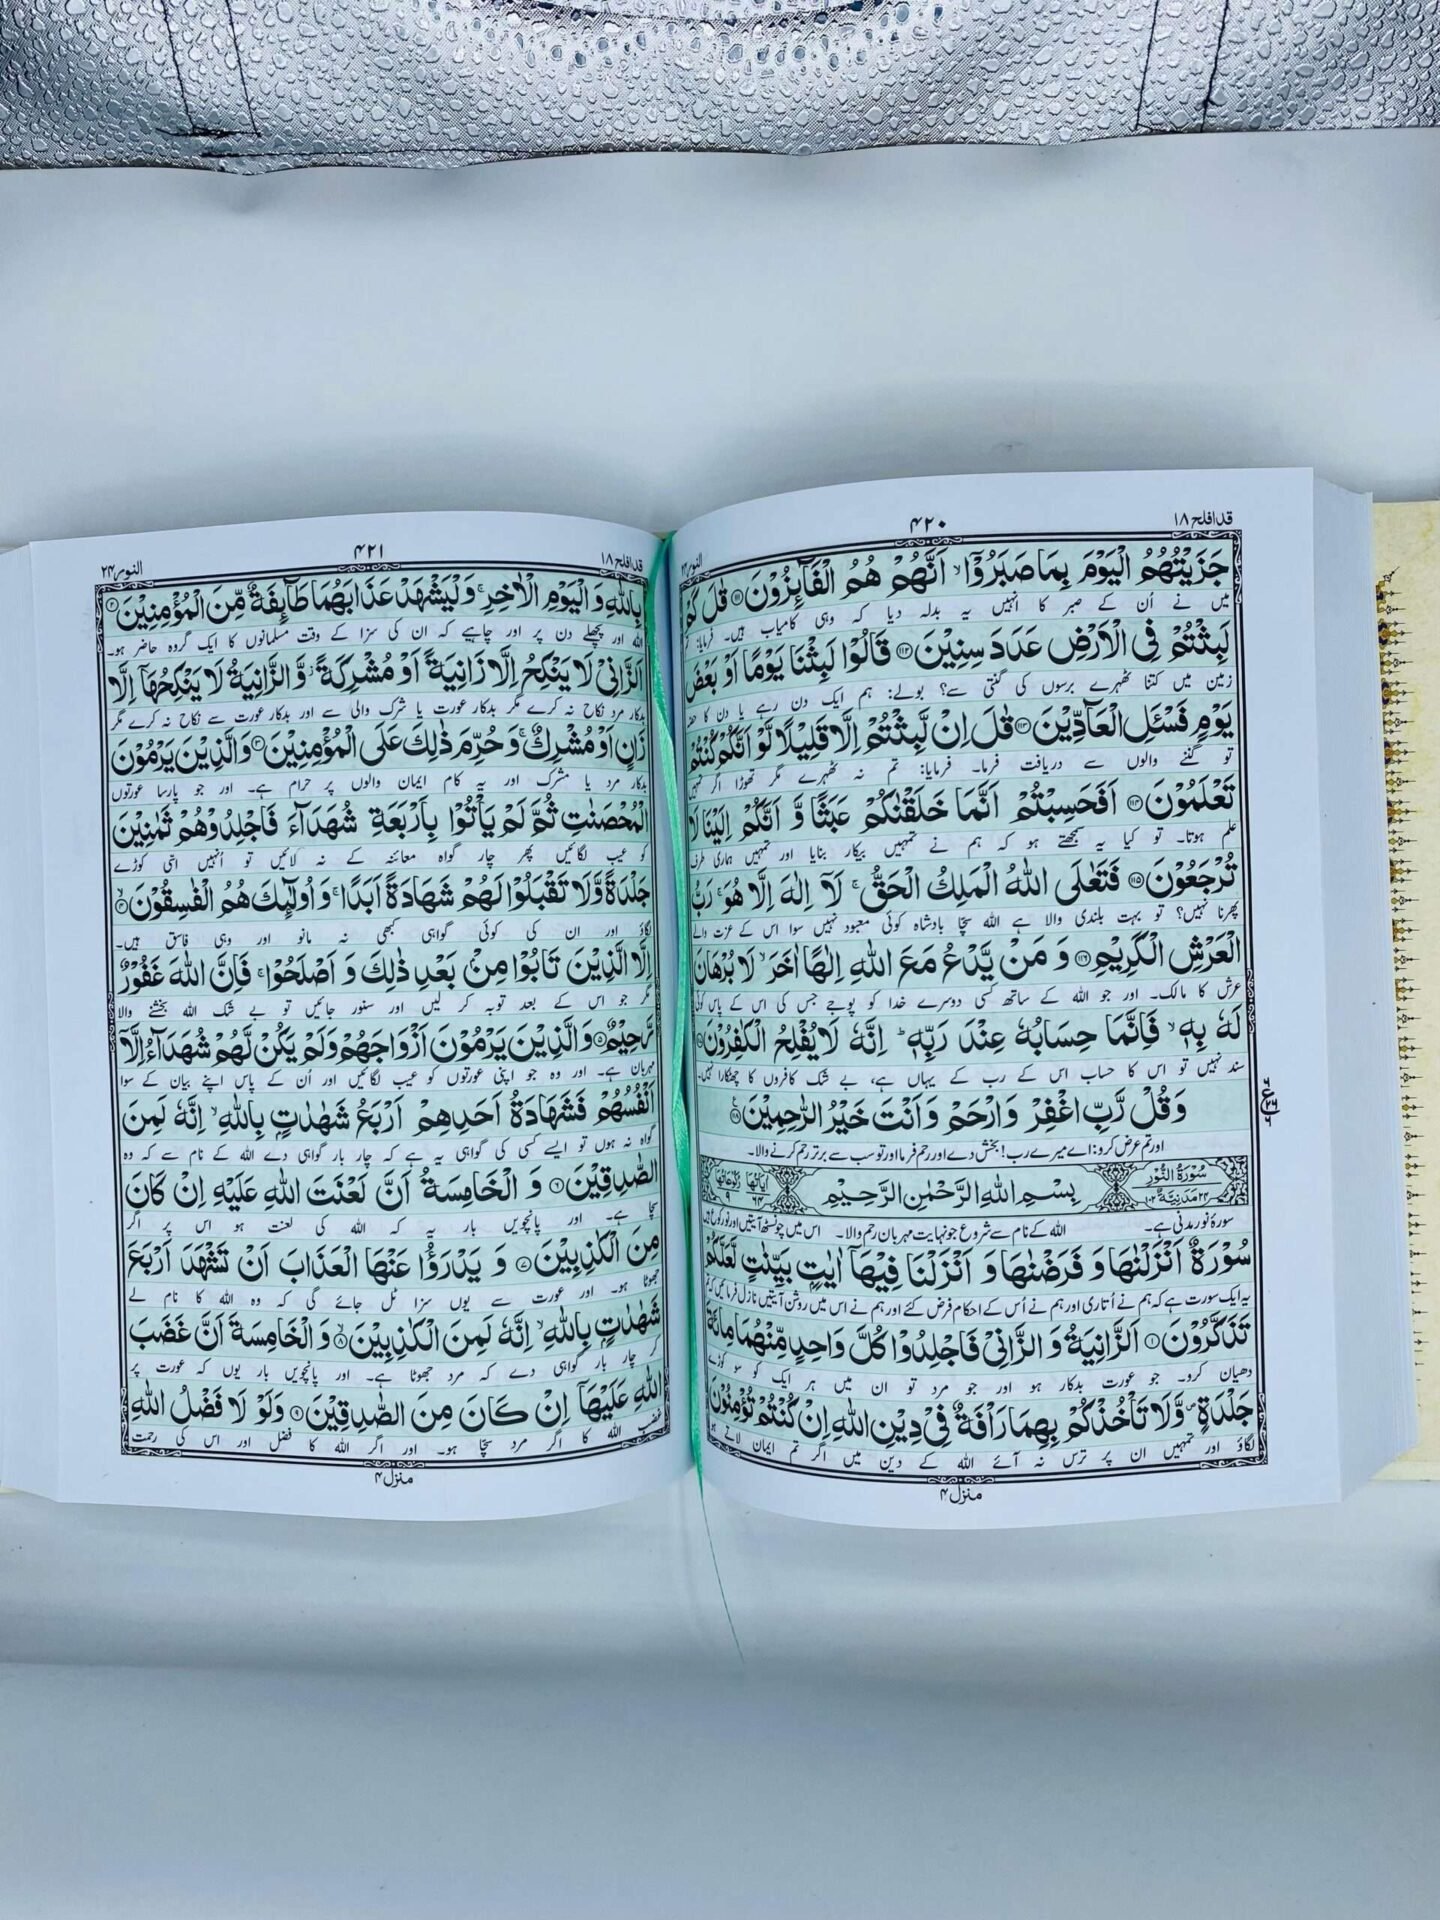 قد افلح ۱۸
۴۲۰
جَزَیْتُهُمُ الْیَوْمَ بِمَا صَبَرُوْۤا ۙ اَنَّهُمْ هُمُ الْفَآىِٕزُوْنَ ﴿۱۱۱﴾ قٰلَ كَمْ
میں نے اُن کے صبر کا انہیں یہ بدلہ دیا کہ وہی کامیاب ہیں۔ فرمایا:
لَبِثْتُمْ فِی الْاَرْضِ عَدَدَ سِنِیْنَ ﴿۱۱۲﴾ قَالُوْا لَبِثْنَا یَوْمًا اَوْ بَعْضَ
زمین میں کتنا ٹھہرے برسوں کی گنتی سے؟ بولے: ہم ایک دن رہے یا دن کا حصہ
یَوْمٍ فَسْـَٔلِ الْعَآدِّیْنَ ﴿۱۱۳﴾ قٰلَ اِنْ لَّبِثْتُمْ اِلَّا قَلِیْلًا لَّوْ اَنَّكُمْ كُنْتُمْ
تو گننے والوں سے دریافت فرما۔ فرمایا: تم نہ ٹھہرے مگر تھوڑا اگر تمہیں
تَعْلَمُوْنَ ﴿۱۱۴﴾ اَفَحَسِبْتُمْ اَنَّمَا خَلَقْنٰكُمْ عَبَثًا وَّ اَنَّكُمْ اِلَیْنَا لَا
علم ہوتا۔ تو کیا یہ سمجھتے ہو کہ ہم نے تمہیں بیکار بنایا اور تمہیں ہماری طرف
تُرْجَعُوْنَ ﴿۱۱۵﴾ فَتَعٰلَى اللّٰهُ الْمَلِكُ الْحَقُّ ۚ لَاۤ اِلٰهَ اِلَّا هُوَ ۚ رَبُّ
پھرنا نہیں؟ تو بہت بلندی والا ہے اللہ سچا بادشاہ کوئی معبود نہیں سوا اس کے عزت والے
الْعَرْشِ الْكَرِیْمِ ﴿۱۱۶﴾ وَ مَنْ یَّدْعُ مَعَ اللّٰهِ اِلٰهًا اٰخَرَ ۙ لَا بُرْهَانَ
عرش کا مالک۔ اور جو اللہ کے ساتھ کسی دوسرے خدا کو پوجے جس کی اس کے پاس کوئی
لَهٗ بِهٖ ۙ فَاِنَّمَا حِسَابُهٗ عِنْدَ رَبِّهٖ ؕ اِنَّهٗ لَا یُفْلِحُ الْكٰفِرُوْنَ ﴿۱۱۷﴾
سند نہیں تو اس کا حساب اس کے رب کے یہاں ہے، بے شک کافروں کا چھٹکارا نہیں۔
وَ قُلْ رَّبِّ اغْفِرْ وَ ارْحَمْ وَ اَنْتَ خَیْرُ الرّٰحِمِیْنَ ﴿۱۱۸﴾
اور تم عرض کرو: اے میرے رب! بخش دے اور رحم فرما اور تو سب سے برتر رحم کرنے والا۔
سُوْرَةُ النُّوْرِ ۲۴ مَدَنِیَّةٌ ۱۰۲ بِسْمِ اللّٰهِ الرَّحْمٰنِ الرَّحِیْمِ اٰیَاتُهَا ۶۴ رُكُوْعَاتُهَا ۹
سورۂ نور مدنی ہے۔ اللہ کے نام سے شروع جو نہایت مہربان رحم والا۔ اس میں چونسٹھ آیتیں اور نو رکوع ہیں
سُوْرَةٌ اَنْزَلْنٰهَا وَ فَرَضْنٰهَا وَ اَنْزَلْنَا فِیْهَاۤ اٰیٰتٍۭ بَیِّنٰتٍ لَّعَلَّكُمْ
یہ ایک سورت ہے کہ ہم نے اُتاری اور ہم نے اُس کے احکام فرض کئے اور ہم نے اس میں روشن آیتیں نازل فرمائیں کہ تم
تَذَكَّرُوْنَ ﴿۱﴾ اَلزَّانِیَةُ وَ الزَّانِیْ فَاجْلِدُوْا كُلَّ وَاحِدٍ مِّنْهُمَا مِائَةَ
دھیان کرو۔ جو عورت بدکار ہو اور جو مرد تو ان میں ہر ایک کو سو کوڑے
جَلْدَةٍ ۪ وَّ لَا تَاْخُذْكُمْ بِهِمَا رَاْفَةٌ فِیْ دِیْنِ اللّٰهِ اِنْ كُنْتُمْ تُؤْمِنُوْنَ
لگاؤ اور تمہیں ان پر ترس نہ آئے اللہ کے دین میں اگر تم ایمان لاتے ہو
منزل ۴
قد افلح ۱۸
۴۲۱
النور ۲۴
بِاللّٰهِ وَ الْیَوْمِ الْاٰخِرِ ۚ وَ لْیَشْهَدْ عَذَابَهُمَا طَآىِٕفَةٌ مِّنَ الْمُؤْمِنِیْنَ ﴿۲﴾
اللہ اور پچھلے دن پر اور چاہیے کہ ان کی سزا کے وقت مسلمانوں کا ایک گروہ حاضر ہو۔
اَلزَّانِیْ لَا یَنْكِحُ اِلَّا زَانِیَةً اَوْ مُشْرِكَةً ؗ وَّ الزَّانِیَةُ لَا یَنْكِحُهَاۤ اِلَّا
بدکار مرد نکاح نہ کرے مگر بدکار عورت یا شرک والی سے اور بدکار عورت سے نکاح نہ کرے مگر
زَانٍ اَوْ مُشْرِكٌ ۚ وَ حُرِّمَ ذٰلِكَ عَلَى الْمُؤْمِنِیْنَ ﴿۳﴾ وَ الَّذِیْنَ یَرْمُوْنَ
بدکار مرد یا مشرک اور یہ کام ایمان والوں پر حرام ہے۔ اور جو پارسا عورتوں
الْمُحْصَنٰتِ ثُمَّ لَمْ یَاْتُوْا بِاَرْبَعَةِ شُهَدَآءَ فَاجْلِدُوْهُمْ ثَمٰنِیْنَ
کو عیب لگائیں پھر چار گواہ معائنہ کے نہ لائیں تو اُنہیں اسّی کوڑے
جَلْدَةً وَّ لَا تَقْبَلُوْا لَهُمْ شَهَادَةً اَبَدًا ۚ وَ اُولٰٓىِٕكَ هُمُ الْفٰسِقُوْنَ ۙ﴿۴﴾
لگاؤ اور ان کی کوئی گواہی کبھی نہ مانو اور وہی فاسق ہیں۔
اِلَّا الَّذِیْنَ تَابُوْا مِنْۢ بَعْدِ ذٰلِكَ وَ اَصْلَحُوْا ۚ فَاِنَّ اللّٰهَ غَفُوْرٌ
مگر جو اس کے بعد توبہ کر لیں اور سنور جائیں تو بے شک اللہ بخشنے والا
رَّحِیْمٌ ﴿۵﴾ وَ الَّذِیْنَ یَرْمُوْنَ اَزْوَاجَهُمْ وَ لَمْ یَكُنْ لَّهُمْ شُهَدَآءُ اِلَّاۤ
مہربان ہے۔ اور وہ جو اپنی عورتوں کو عیب لگائیں اور اُن کے پاس اپنے بیان کے سوا
اَنْفُسُهُمْ فَشَهَادَةُ اَحَدِهِمْ اَرْبَعُ شَهٰدٰتٍۭ بِاللّٰهِ ۙ اِنَّهٗ لَمِنَ
گواہ نہ ہوں تو ایسے کسی کی گواہی یہ ہے کہ چار بار گواہی دے اللہ کے نام سے کہ وہ
الصّٰدِقِیْنَ ﴿۶﴾ وَ الْخَامِسَةُ اَنَّ لَعْنَتَ اللّٰهِ عَلَیْهِ اِنْ كَانَ
سچا ہے۔ اور پانچویں بار یہ کہ اللہ کی لعنت ہو اس پر اگر
مِنَ الْكٰذِبِیْنَ ﴿۷﴾ وَ یَدْرَؤُا عَنْهَا الْعَذَابَ اَنْ تَشْهَدَ اَرْبَعَ
جھوٹا ہو۔ اور عورت سے یوں سزا ٹل جائے گی کہ وہ اللہ کا نام لے
شَهٰدٰتٍۭ بِاللّٰهِ ۙ اِنَّهٗ لَمِنَ الْكٰذِبِیْنَ ۙ﴿۸﴾ وَ الْخَامِسَةَ اَنَّ غَضَبَ
کر چار بار گواہی دے کہ مرد جھوٹا ہے۔ اور پانچویں بار یوں کہ عورت پر
اللّٰهِ عَلَیْهَاۤ اِنْ كَانَ مِنَ الصّٰدِقِیْنَ ﴿۹﴾ وَ لَوْ لَا فَضْلُ اللّٰهِ
غضب اللہ کا اگر مرد سچا ہو۔ اور اگر اللہ کا فضل اور اس کی رحمت
منزل ۴